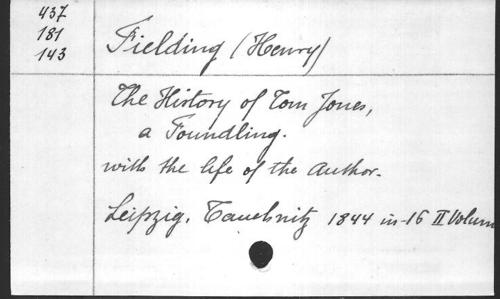 437
181
143
Fielding (Henry)
The History of Tom Jones,
a Foundling.
with the life of the Author.
Leipzig, Tauchnitz 1844 in-16 II Volum